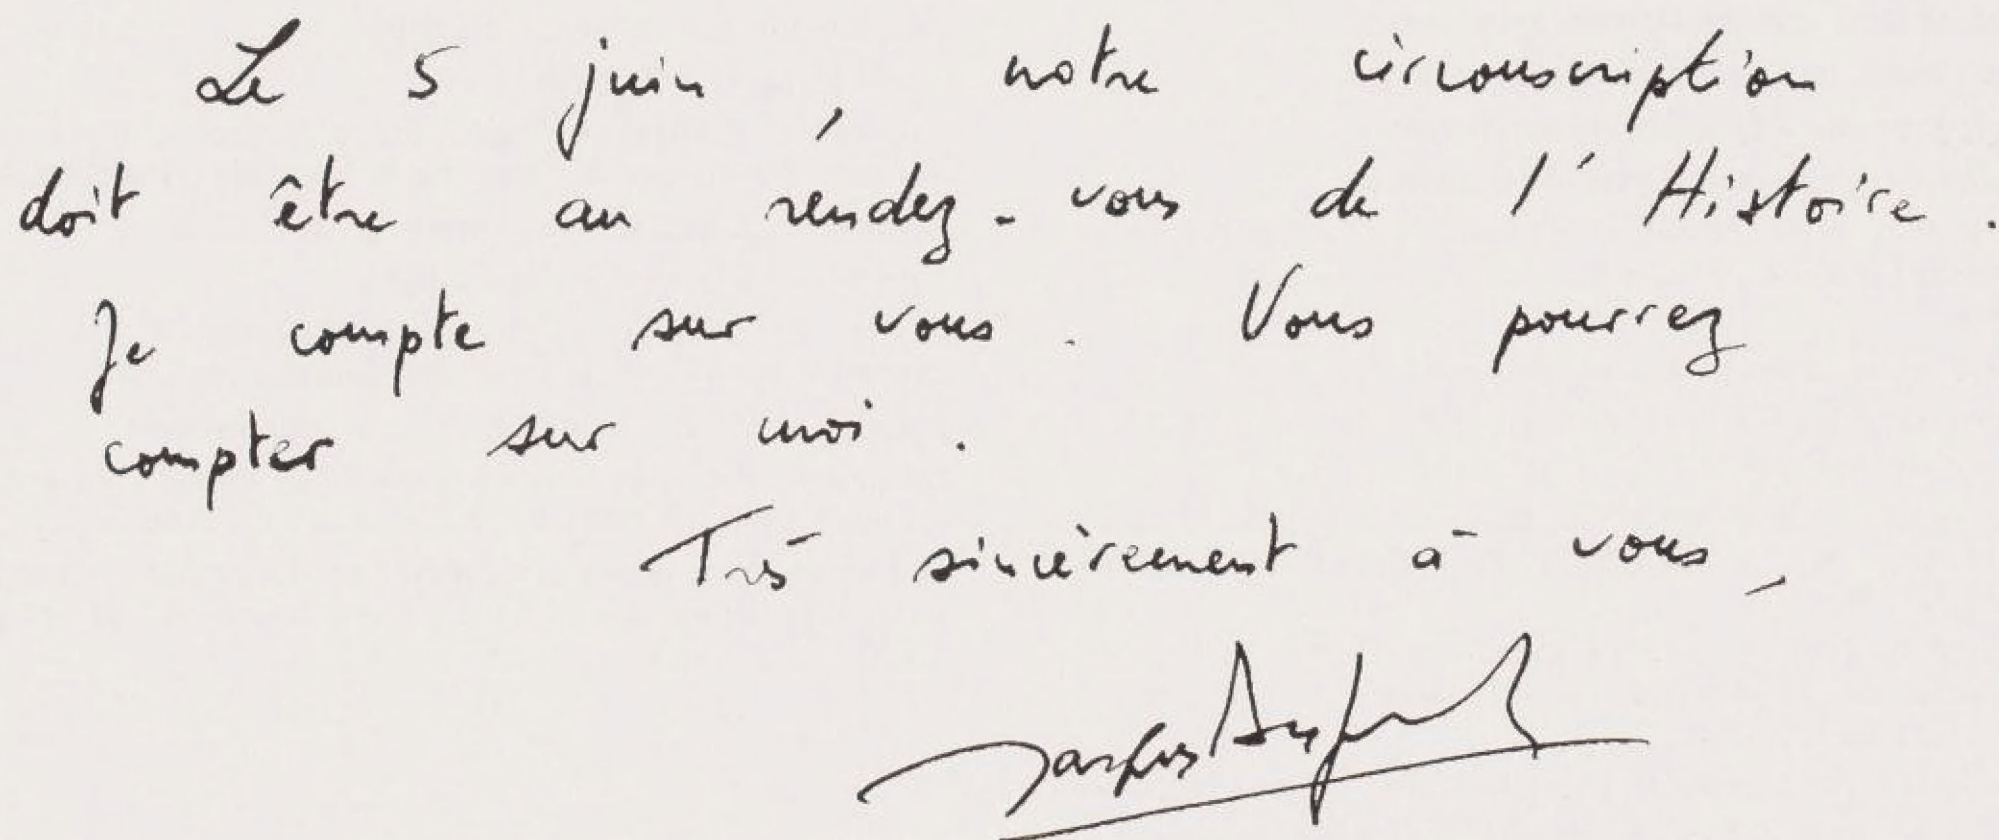 Le 5 juin, notre circonscription
doit être au rendez-vous de l'Histoire.
Je compte sur vous. Vous pourrez
compter sur moi.
Très sincèrement à vous,
Jacques